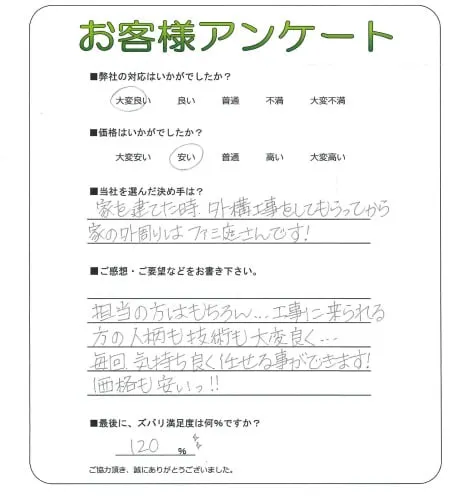 お客様アンケート
■弊社の対応はいかがでしたか？
大変良い 良い 普通 不満 大変不満
■価格はいかがでしたか？
大変安い 安い 普通 高い 大変高い
■当社を選んだ決め手は？
家を建てた時、外構工事をしてもらってから
家の外周りはファミ庭さんです!
■ご感想・ご要望などをお書き下さい。
担当の方はもちろん...工事に来られる
方の人柄も技術も大変良く...
毎回気持ち良く任せる事ができます!
価格も安いっ!!
■最後に、ズバリ満足度は何%ですか？
120 %
ご協力頂き、誠にありがとうございました。